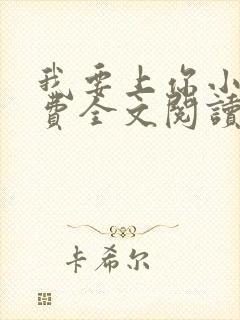 我要上你小
費全文閱讀
卡希尔